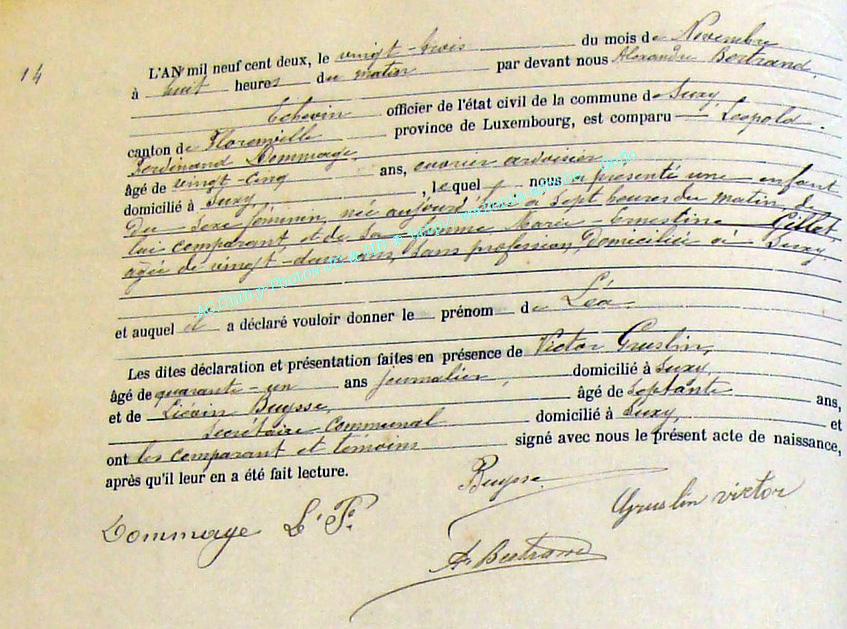 14
L'AN mil neuf cent deux, le vingt-trois du mois de Novembre
à huit heures du matin par devant nous Alexandre Bertrand,
Echevin officier de l'état civil de la commune de Suxy,
canton de Florenville province de Luxembourg, est comparu Léopold
Ferdinand Dommage,
âgé de vingt-cinq ans, ouvrier ardoisier
domicilié à Suxy, lequel nous a présenté une enfant
du sexe féminin, née aujourd'hui à sept heures du matin, de
lui comparant, et de sa femme Marie-Ernestine Gillet,
agée de vingt-deux ans, sans profession, domiciliée à Suxy.
et auquel il a déclaré vouloir donner le prénom de Léa.
Les dites déclaration et présentation faites en présence de Victor Gruslin,
âgé de quarante-un ans journalier, domicilié à Suxy
et de Buysse, âgé de septante ans,
secrétaire communal domicilié à Suxy, et
ont les comparant et témoins signé avec nous le présent acte de naissance,
après qu'il leur en a été fait lecture.
Buysse
Gruslin victor
Dommage L. F.
A. Bertrand